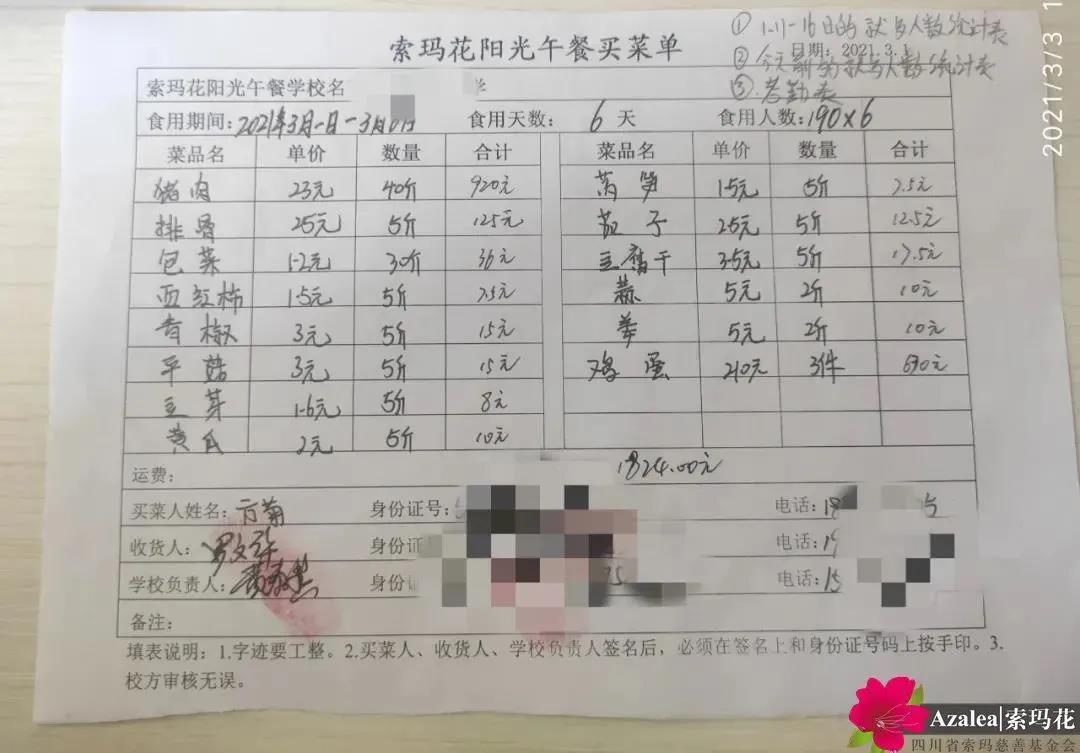 ① 1.11-16日的就餐人数统计表
索玛花阳光午餐买菜单
日期：2021.3.1
② 今天前的就餐人数统计表
③ 考勤表
索玛花阳光午餐学校名 学
食用期间：2021年3月1日-3月 日 食用天数： 6 天 食用人数：190×6
菜品名 单价 数量 合计 菜品名 单价 数量 合计
猪肉 23元 40斤 920元 莴笋 1.5元 5斤 7.5元
排骨 25元 5斤 125元 茄子 2.5元 5斤 12.5元
包菜 1.2元 30斤 36元 豆腐干 3.5元 5斤 17.5元
西红柿 1.5元 5斤 7.5元 蒜 5元 2斤 10元
青椒 3元 5斤 15元 5元 2斤 10元
平菇 3元 5斤 15元 鸡蛋 210元 3件 630元
豆芽 1.6元 5斤 8元
黄瓜 2元 5斤 10元
运费： 1824.00元
买菜人姓名： 菊 身份证号： 电话：18 5
收货人：罗 身份证 电话：1
学校负责人： 身份证 75 电话：15
备注：
填表说明：1.字迹要工整。2.买菜人、收货人、学校负责人签名后，必须在签名上和身份证号码上按手印。3.
校方审核无误。
2021/3/3 1
Azalea|索玛花
四川省索玛慈善基金会